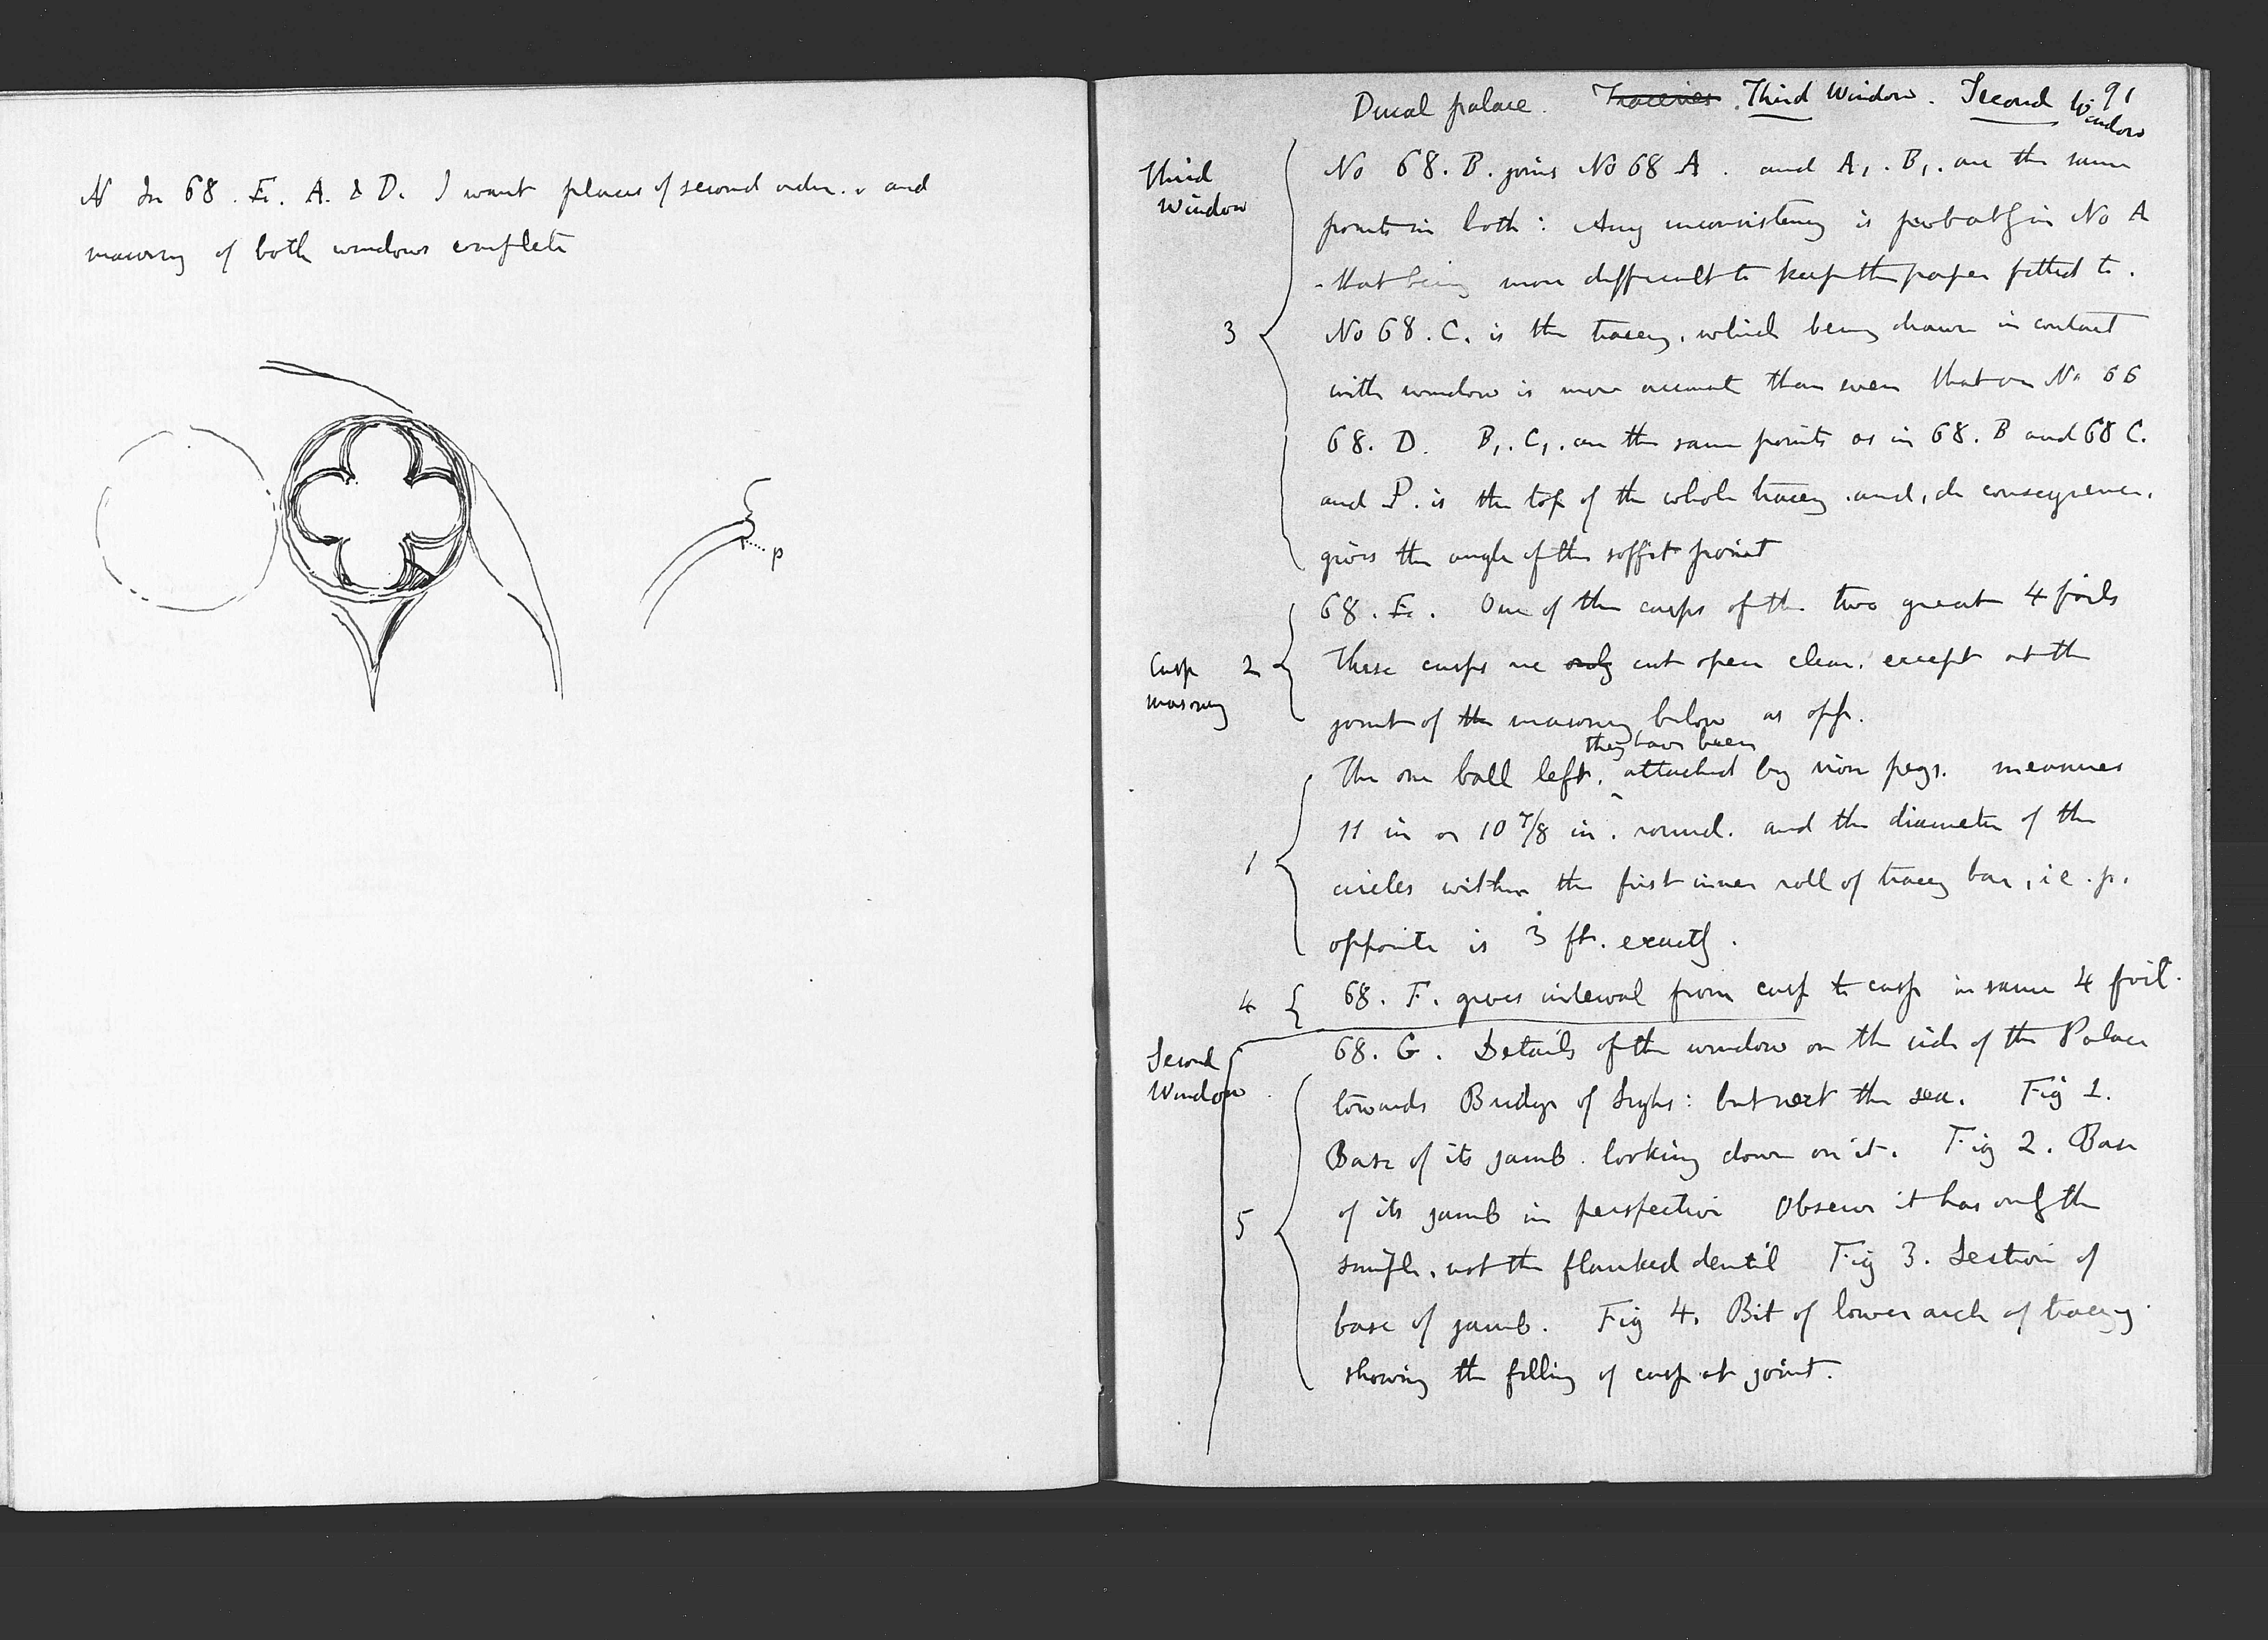 N In 68. E. A. & D. I want places of second order. & and
masonry of both windows complete
p
Ducal palace. Traceries. Third Window. Second Window
91
Third
Window
No 68. B. joins No 68 A. and A,. B,. are the same
points in both: Any inconsistency is probably in No A
- that being more difficult to keep the paper fitted to.
3
No 68. C. is the tracery, which being drawn in contact
with window is more accurate than even that on No 66
68. D. B,. C,. are the same points as in 68. B and 68 C.
and P. is the top of the whole tracery and, de consequence,
gives the angle of the soffit point
68. E. One of the cusps of the two great 4 foils
Cusp
masonry
2
These cusps are only cut open clear, except at the
joint of the masonry below as opp.
they have been
The one ball left, attached by iron pegs. measures
11 in or 10 7/8 in. round. and the diameter of the
1
circles within the first inner roll of tracery bar, i e. p.
opposite is 3 ft. exactly.
4
68. F. gives interval from cusp to cusp in same 4 foil.
Second
Window.
68. G. Details of the window on the side of the Palace
towards Bridge of Sighs: but next the sea. Fig 1.
Base of its jamb. looking down on it. Fig 2. Base
5
of its jamb in perspective Observe it has only the
simple, not the flanked dentil Fig 3. Section of
base of jamb. Fig 4. Bit of lower arch of tracery.
showing the filling of cusp at joint.